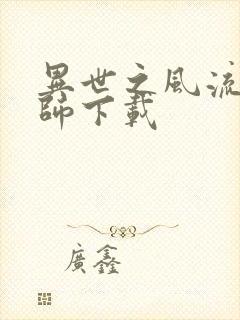 異世之風流
師下載
廣鑫